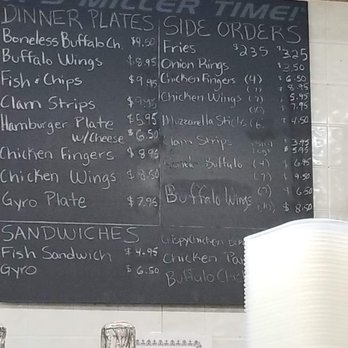 MILLER TIME!
DINNER PLATES
Boneless Buffalo Ch. $9.50
Buffalo Wings $8.95
Fish & Chips $9.95
Clam Strips
Hamburger Plate $5.95
w/Cheese $6.50
Chicken Fingers $8.95
Chicken Wings $8.50
Gyro Plate $7.95
SANDWICHES
Fish Sandwich $4.95
Gyro $6.50
SIDE ORDERS
Fries $2.35 $3.25
Onion Rings $3.50
Chicken Fingers (4) $6.50
$8.95
Chicken Wings $5.95
7.95
Mozzarella Sticks (6 $4.50
Clam Strips
$5.95
Buffalo (4) $6.95
9.50
Buffalo Wings (7) $6.50
$8.50
Crispy Chicken
Chicken
Buffalo